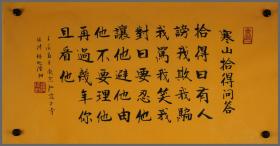 寒山拾得问答
拾得曰有人
謗我欺我騙
我罵我笑我
對曰要忍他
讓他避他由
他不要理他
再過幾年你
且看他